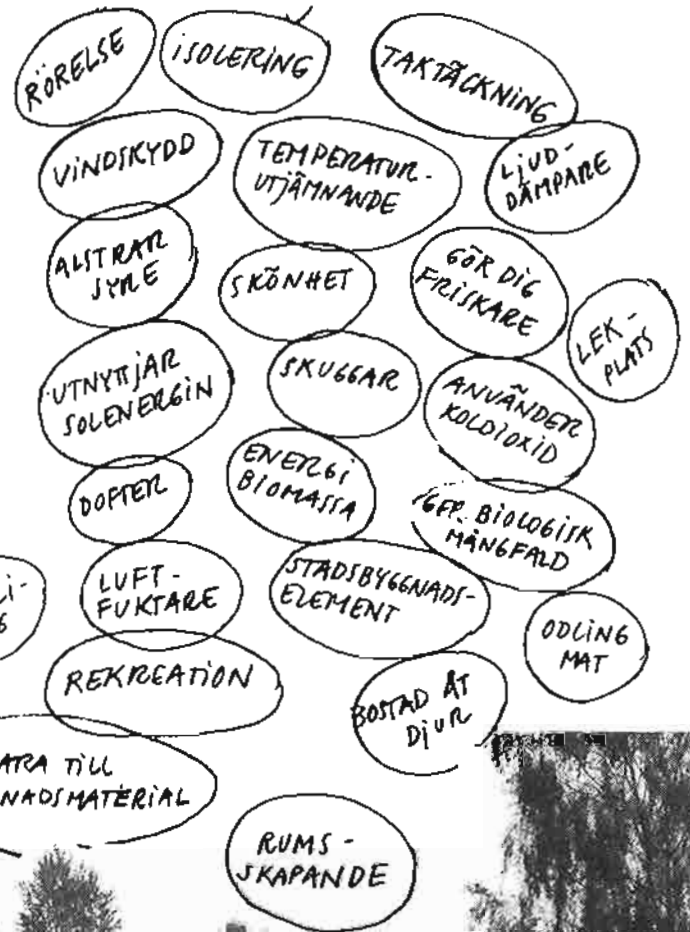 RÖRELSE
ISOLERING
TAKTÄCKNING
VINDSKYDD
TEMPERATUR-
UTJÄMNANDE
LJUD-
DÄMPARE
ALSTRAR
SYRE
SKÖNHET
GÖR DIG
FRISKARE
LEK-
PLATS
UTNYTTJAR
SOLENERGIN
SKUGGAR
ANVÄNDER
KOLDIOXID
DOFTER
ENERGI
BIOMASSA
GER BIOLOGISK
MÅNGFALD
LUFT-
FUKTARE
STADSBYGGNADS-
ELEMENT
ODLING
MAT
REKREATION
BOSTAD ÅT
DJUR
TILL
RUMS-
SKAPANDE